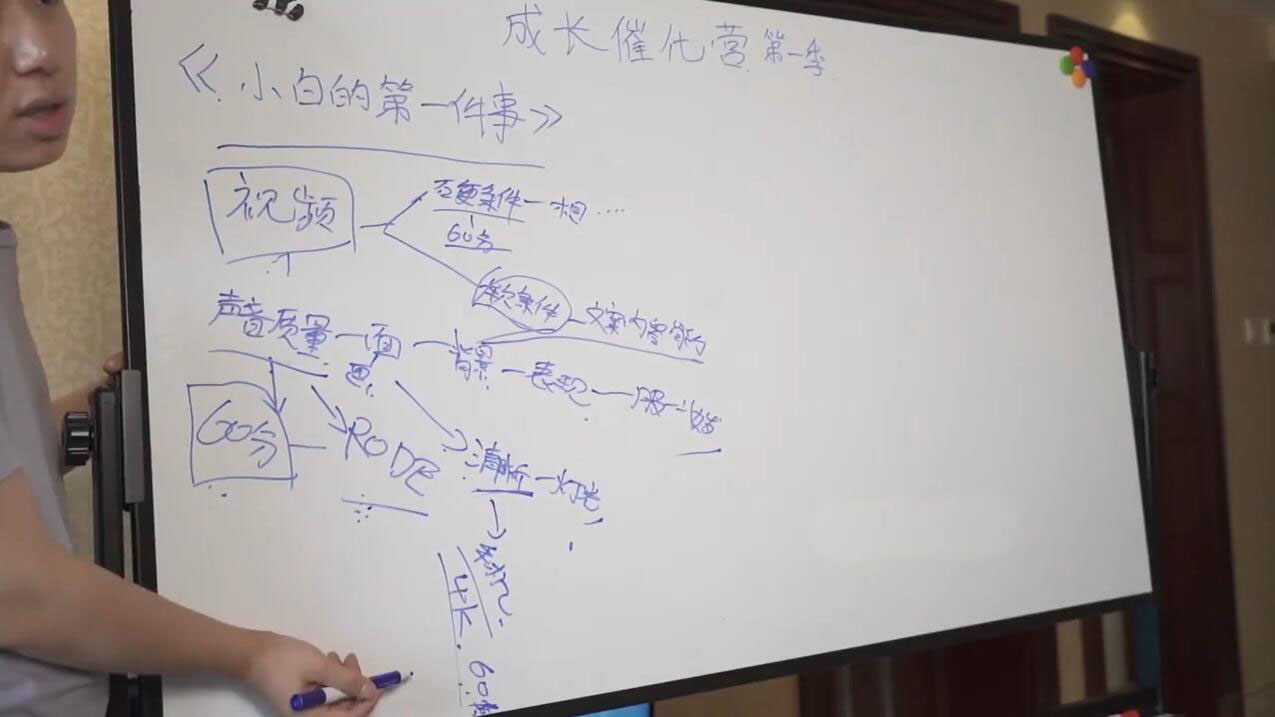 成长催化营第一季
《小白的第一件事》
视频
条件一相....
60分
条件 - 文案内容
声音质量 — 画面 — 背景 — 表现 — 服
60分 — RODE
清晰 — 灯光
4K
60